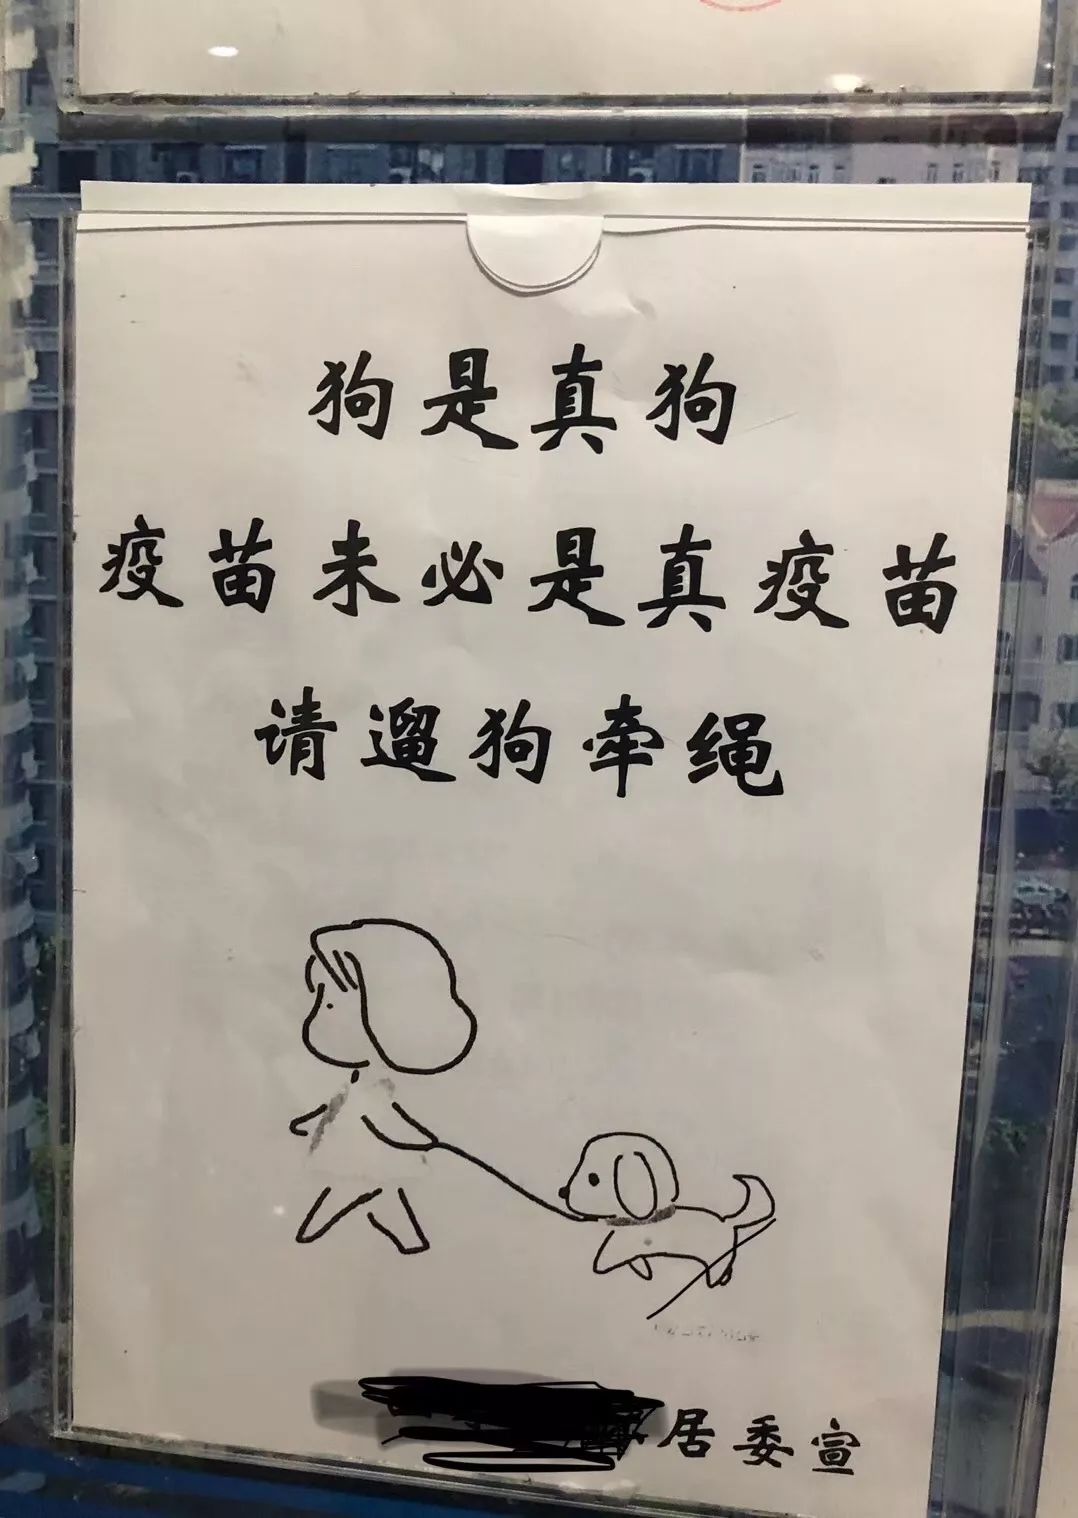 狗是真狗
疫苗未必是真疫苗
请遛狗牵绳
居委宣